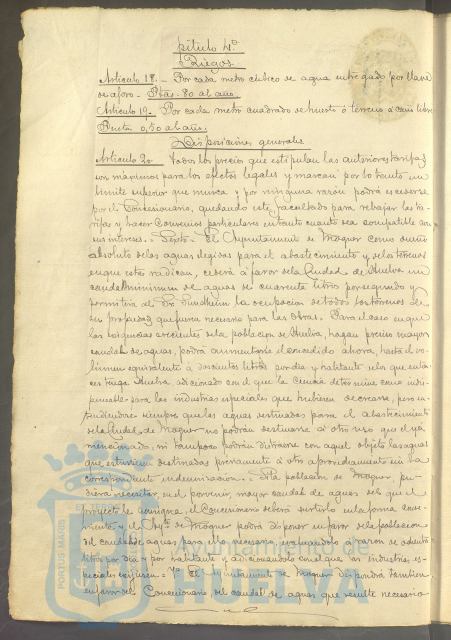 pítulo 4º
Riegos.
Artículo 18.- Por cada metro cúbico de agua entregado por llave
de aforo - Ptas. 80 al año.
Artículo 19. Por cada metro cuadrado de huerto ó terreno á caño libre
Pesetas 0,50 al año.
Disposiciones generales
Artículo 20. Todos los precios que estipulan las anteriores tarifas
son máximos para los efectos legales y marcan por lo tanto un
límite superior que nunca y por ninguna razón podrá excederse
por el Concesionario, quedando este facultado para rebajar las ta-
rifas y hacer Convenios particulares en tanto cuanto sea compatible con
sus intereses. = Sexto. = El Ayuntamiento de Moguer como dueño
absoluto de las aguas elegidas para el abastecimiento y de los terrenos
en que estas radican, cederá á favor de la Ciudad de Huelva un
caudal mínimum de aguas de cuarenta litros por segundo y
permitirá al Sr. Sundheim la ocupación de todos los terrenos de
su propiedad que fueren necesarios para las obras. Para el caso en que
las exigencias crecientes de la población de Huelva, hagan preciso mayor
caudal de aguas, podrá aumentarse el concedido ahora, hasta el vo-
lumen equivalente á doscientos litros por día y habitante de los que enton-
ces tenga Huelva, adicionado con el que la Ciencia determine como indis-
pensable para las industrias especiales que hubieren de crearse, pero en-
tendiendose siempre que las aguas destinadas para el abastecimiento
de la Ciudad de Moguer no podrán destinarse á otro uso que el ya
mencionado, ni tampoco podrán distraerse con aquel objeto las aguas
que estuvieren destinadas previamente á otro aprovechamiento sin la
correspondiente indemnización. = Si la población de Moguer, pu-
diera necesitar, en el porvenir, mayor caudal de aguas del que el
proyecto le asigna, el Concesionario deberá surtirlo en la forma conve-
niente, y el Aytº de Moguer podrá disponer en favor de la población
del caudal de aguas para ello necesario, evaluando á razón de ochenta
litros por día y por habitante y adicionando con el que las industrias es-
peciales exijiesen. = 7º El Ayuntamiento de Moguer dispondrá también
en favor del Concesionario, del caudal de aguas que resulte necesario
PORTUS MARIS
Ayuntamiento de
HUELVA